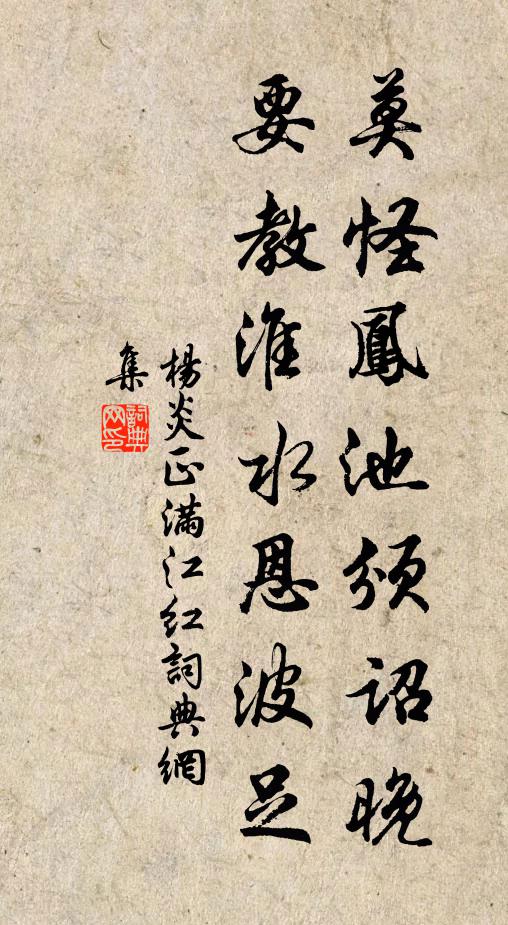 莫怪鳳池頒詔晚
要教淮水恩波足
楊炎正滿江紅詞典網
集
詞典網印